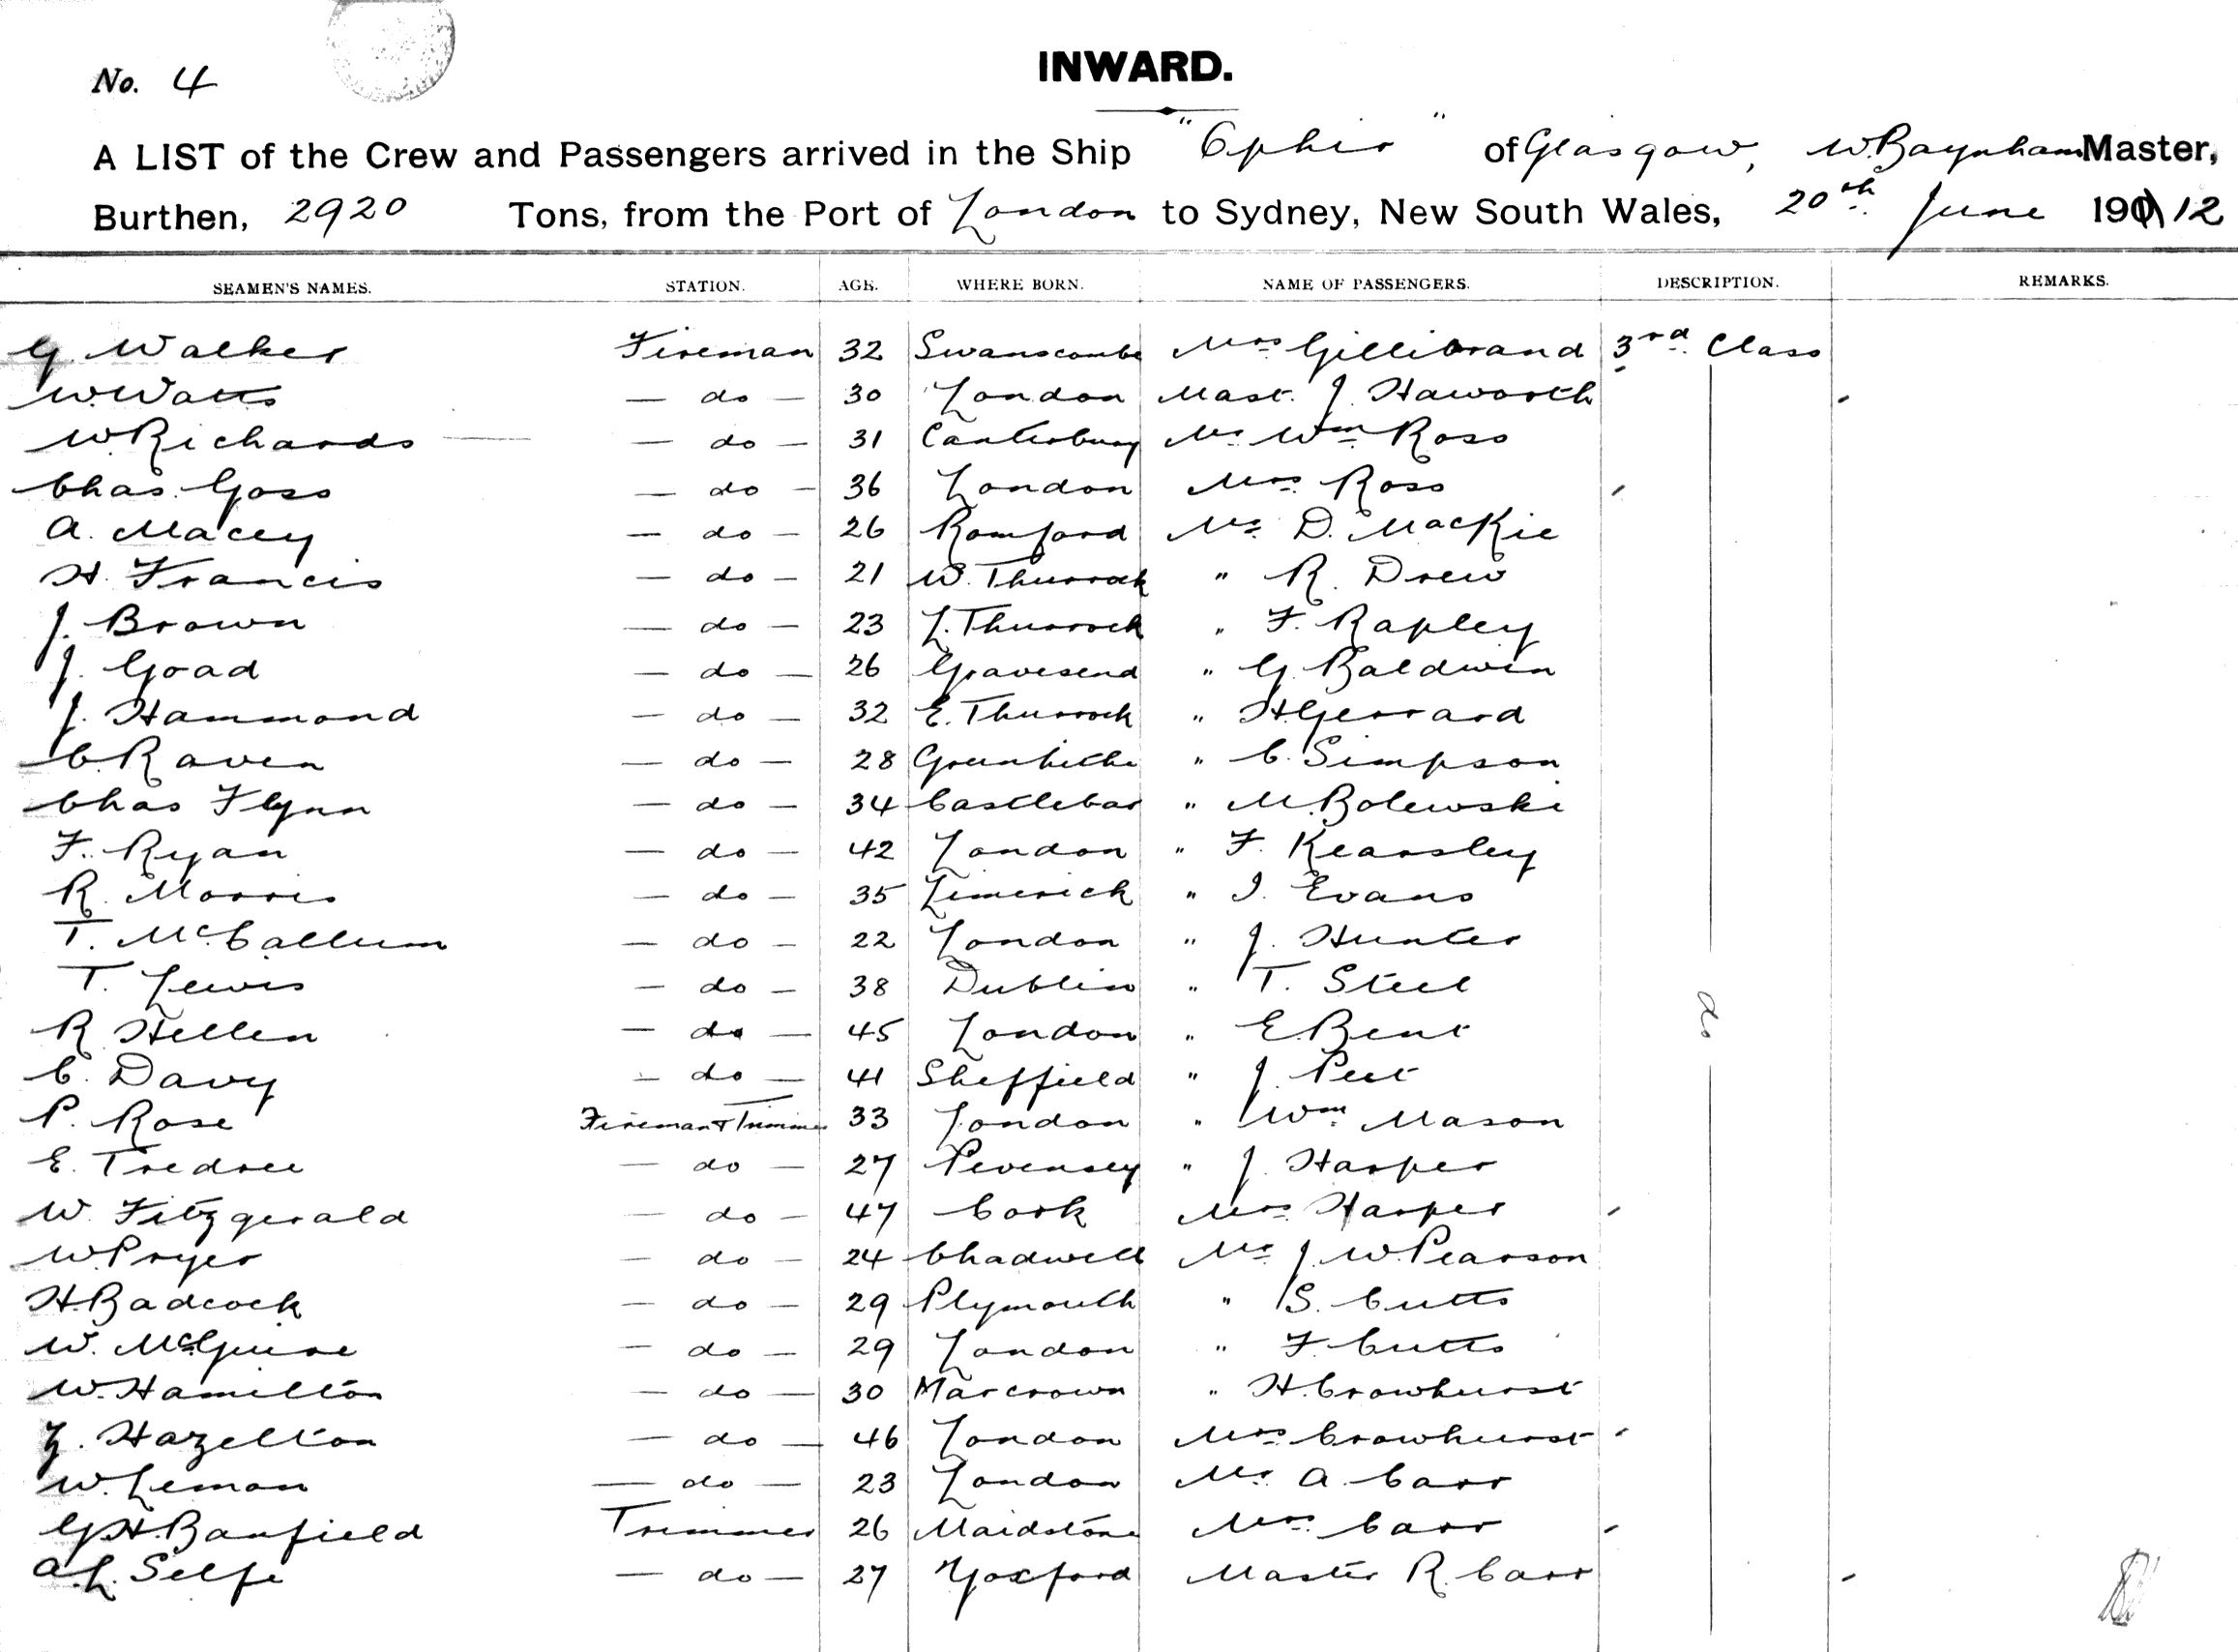 No. 4
INWARD.
A LIST of the Crew and Passengers arrived in the Ship "Ophir" of Glasgow, W. Baynham Master,
Burthen, 2920 Tons, from the Port of London to Sydney, New South Wales, 20th June 1912
SEAMEN'S NAMES. STATION. AGE. WHERE BORN. NAME OF PASSENGERS. DESCRIPTION. REMARKS.
G. Walker Fireman 32 Swanscombe Mrs Gillibrand 3rd Class
W. Watts — do — 30 London Mast. J. Haworth
W. Richards — do — 31 Canterbury Mr Wm Ross
Chas. Goss — do — 36 London Mrs. Ross
A. Macey — do — 26 Romford Mr. D. MacKie
H. Francis — do — 21 W. Thurrock " R. Drew
J. Brown — do — 23 L. Thurrock " F. Rapley
J. Goad — do — 26 Gravesend " G. Baldwin
J. Hammond — do — 32 E. Thurrock " H. Gerrard
C. Raven — do — 28 Greenhithe " C. Simpson
Chas Flynn — do — 34 Castlebar " M. Bolewski
F. Ryan — do — 42 London " F. Kearsley
R. Morris — do — 35 Limerick " I. Evans
T. McCallum — do — 22 London " J. Hunter
T. Lewis — do — 38 Dublin " T. Steel
R. Hellen — do — 45 London " E. Bent do
C. Davy — do — 41 Sheffield " J. Peet
P. Rose Fireman & Trimmer 33 London " Wm Mason
E. Tredree — do — 27 Pevensey " J. Harper
W. Fitzgerald — do — 47 Cork Mrs. Harper
W. Pryer — do — 24 Chadwell Mr. J. W. Pearson
H. Badcock — do — 29 Plymouth " S. Cutts
W. McGuire — do — 29 London " F. Cutts
W. Hamilton — do — 30 Marcrown " H. Crowhurst
Z. Hazelton — do — 46 London Mrs. Crowhurst
W. Leman — do — 23 London Mr. A. Carr
G. H. Banfield Trimmer 26 Maidstone Mrs. Carr
A. L. Selfe — do — 27 Yoxford Master R. Carr